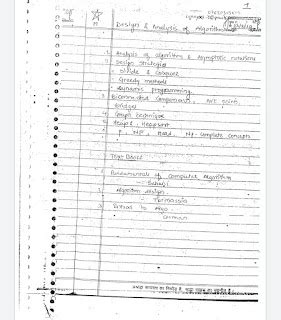 1
Design & Analysis of Algorithms
1. Analysis of algorithms & Asymptotic notations
2. Design strategies
- Divide & Conquer
- Greedy methods
- Dynamic programming
3. Biconnected Components, Art. points,
Bridges
Graph techniques
Heaps, Heapsort
P, NP, Hard, NP-Complete concepts
Text Books
1. Fundamentals of Computer Algorithm
- Sahni
2. Algorithm design
- Tamassia
3. to Algo
- Corman